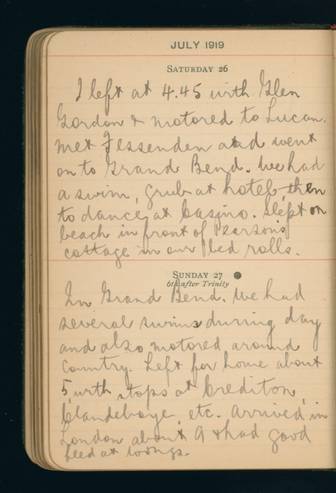 JULY 1919
SATURDAY 26
I left at 4.45 with Glen
Gordon & motored to Lucan.
Met Fessenden and went
on to Grand Bend. We had
a swim, grub at hotel, then
to dance at casino. Slept on
beach in front of Pearson's
cottage in our bed rolls.
SUNDAY 27
6th after Trinity
In Grand Bend. We had
several swims during day
and also motored around
country. Left for home about
5, with stops at Crediton,
Clandeboye etc. Arrived in
London about 9 & had good
feed at